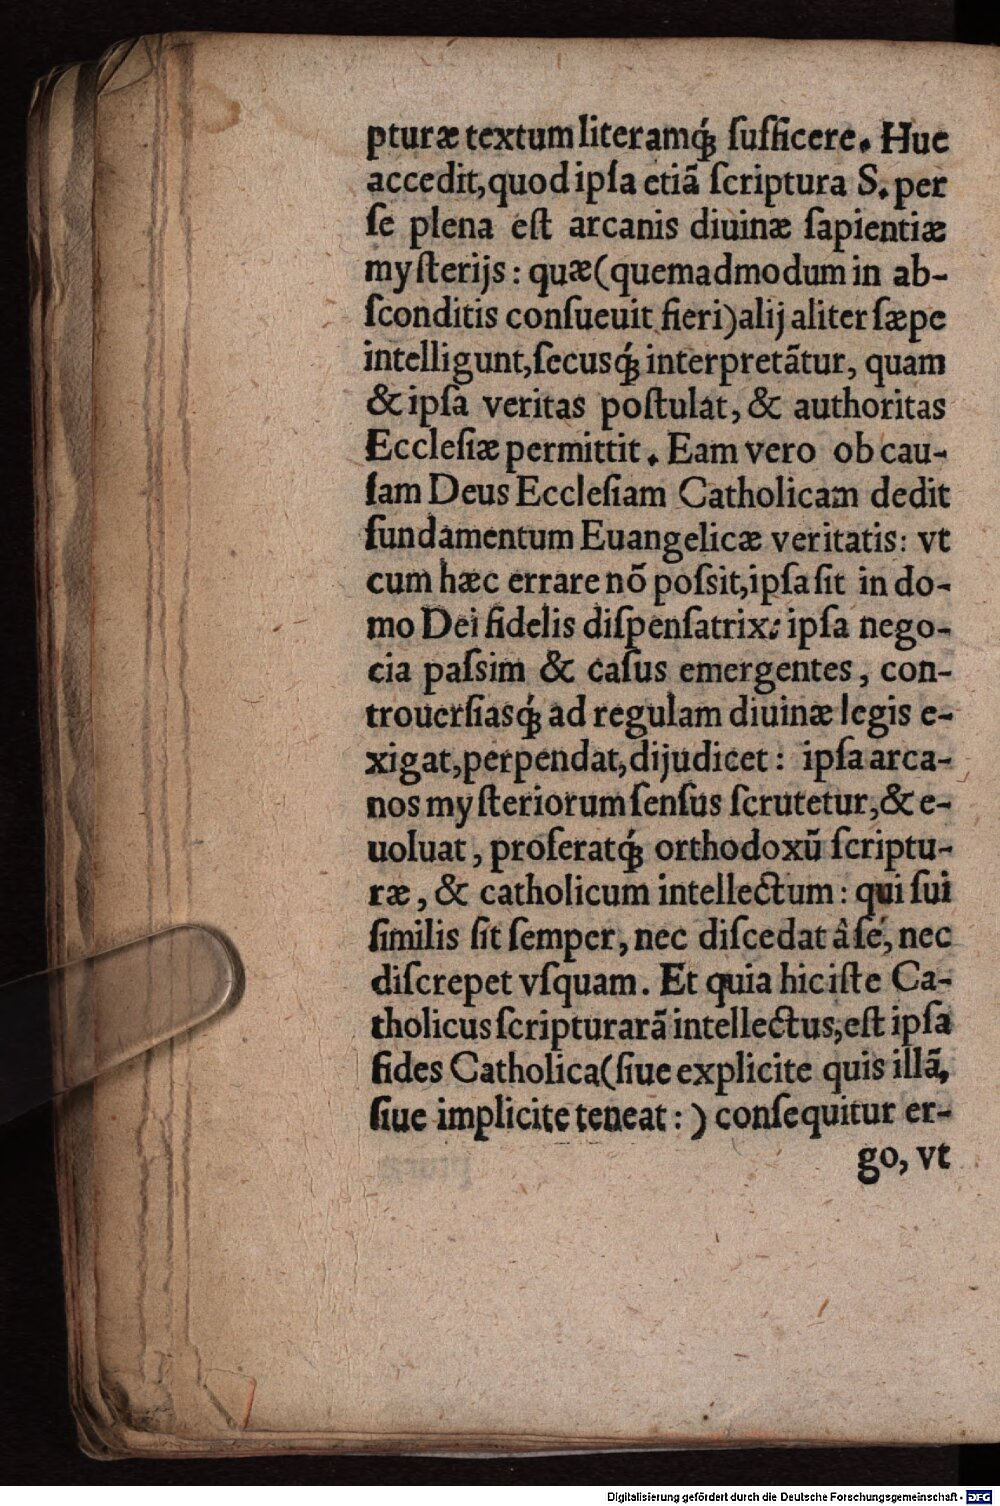 pturæ textum literamq́ꝫ ſufficere. Huc
accedit, quod ipſa etiã ſcriptura S. per
ſe plena eſt arcanis diuinæ ſapientiæ
myſterijs: quæ (quemadmodum in ab-
ſconditis conſueuit fieri) alij aliter ſæpe
intelligunt, ſecusq́ꝫ interpretãtur, quam
& ipſa veritas poſtulat, & authoritas
Eccleſiæ permittit. Eam vero ob cau-
ſam Deus Eccleſiam Catholicam dedit
fundamentum Euangelicæ veritatis: vt
cum hæc errare nõ poſsit, ipſa ſit in do-
mo Dei fidelis diſpenſatrix: ipſa nego-
cia paſsim & caſus emergentes, con-
trouerſiasq́ꝫ ad regulam diuinæ legis e-
xigat, perpendat, dijudicet: ipſa arca-
nos myſteriorum ſenſus ſcrutetur, & e-
uoluat, proferatq́ꝫ orthodoxũ ſcriptu-
ræ, & catholicum intellectum: qui ſui
ſimilis ſit ſemper, nec diſcedat â ſe, nec
diſcrepet vſquam. Et quia hic iſte Ca-
tholicus ſcripturarã intellectus, eſt ipſa
fides Catholica (ſiue explicite quis illã,
ſiue implicite teneat:) conſequitur er-
go, vt
Digitalisierung gefördert durch die Deutsche Forschungsgemeinschaft - DFG